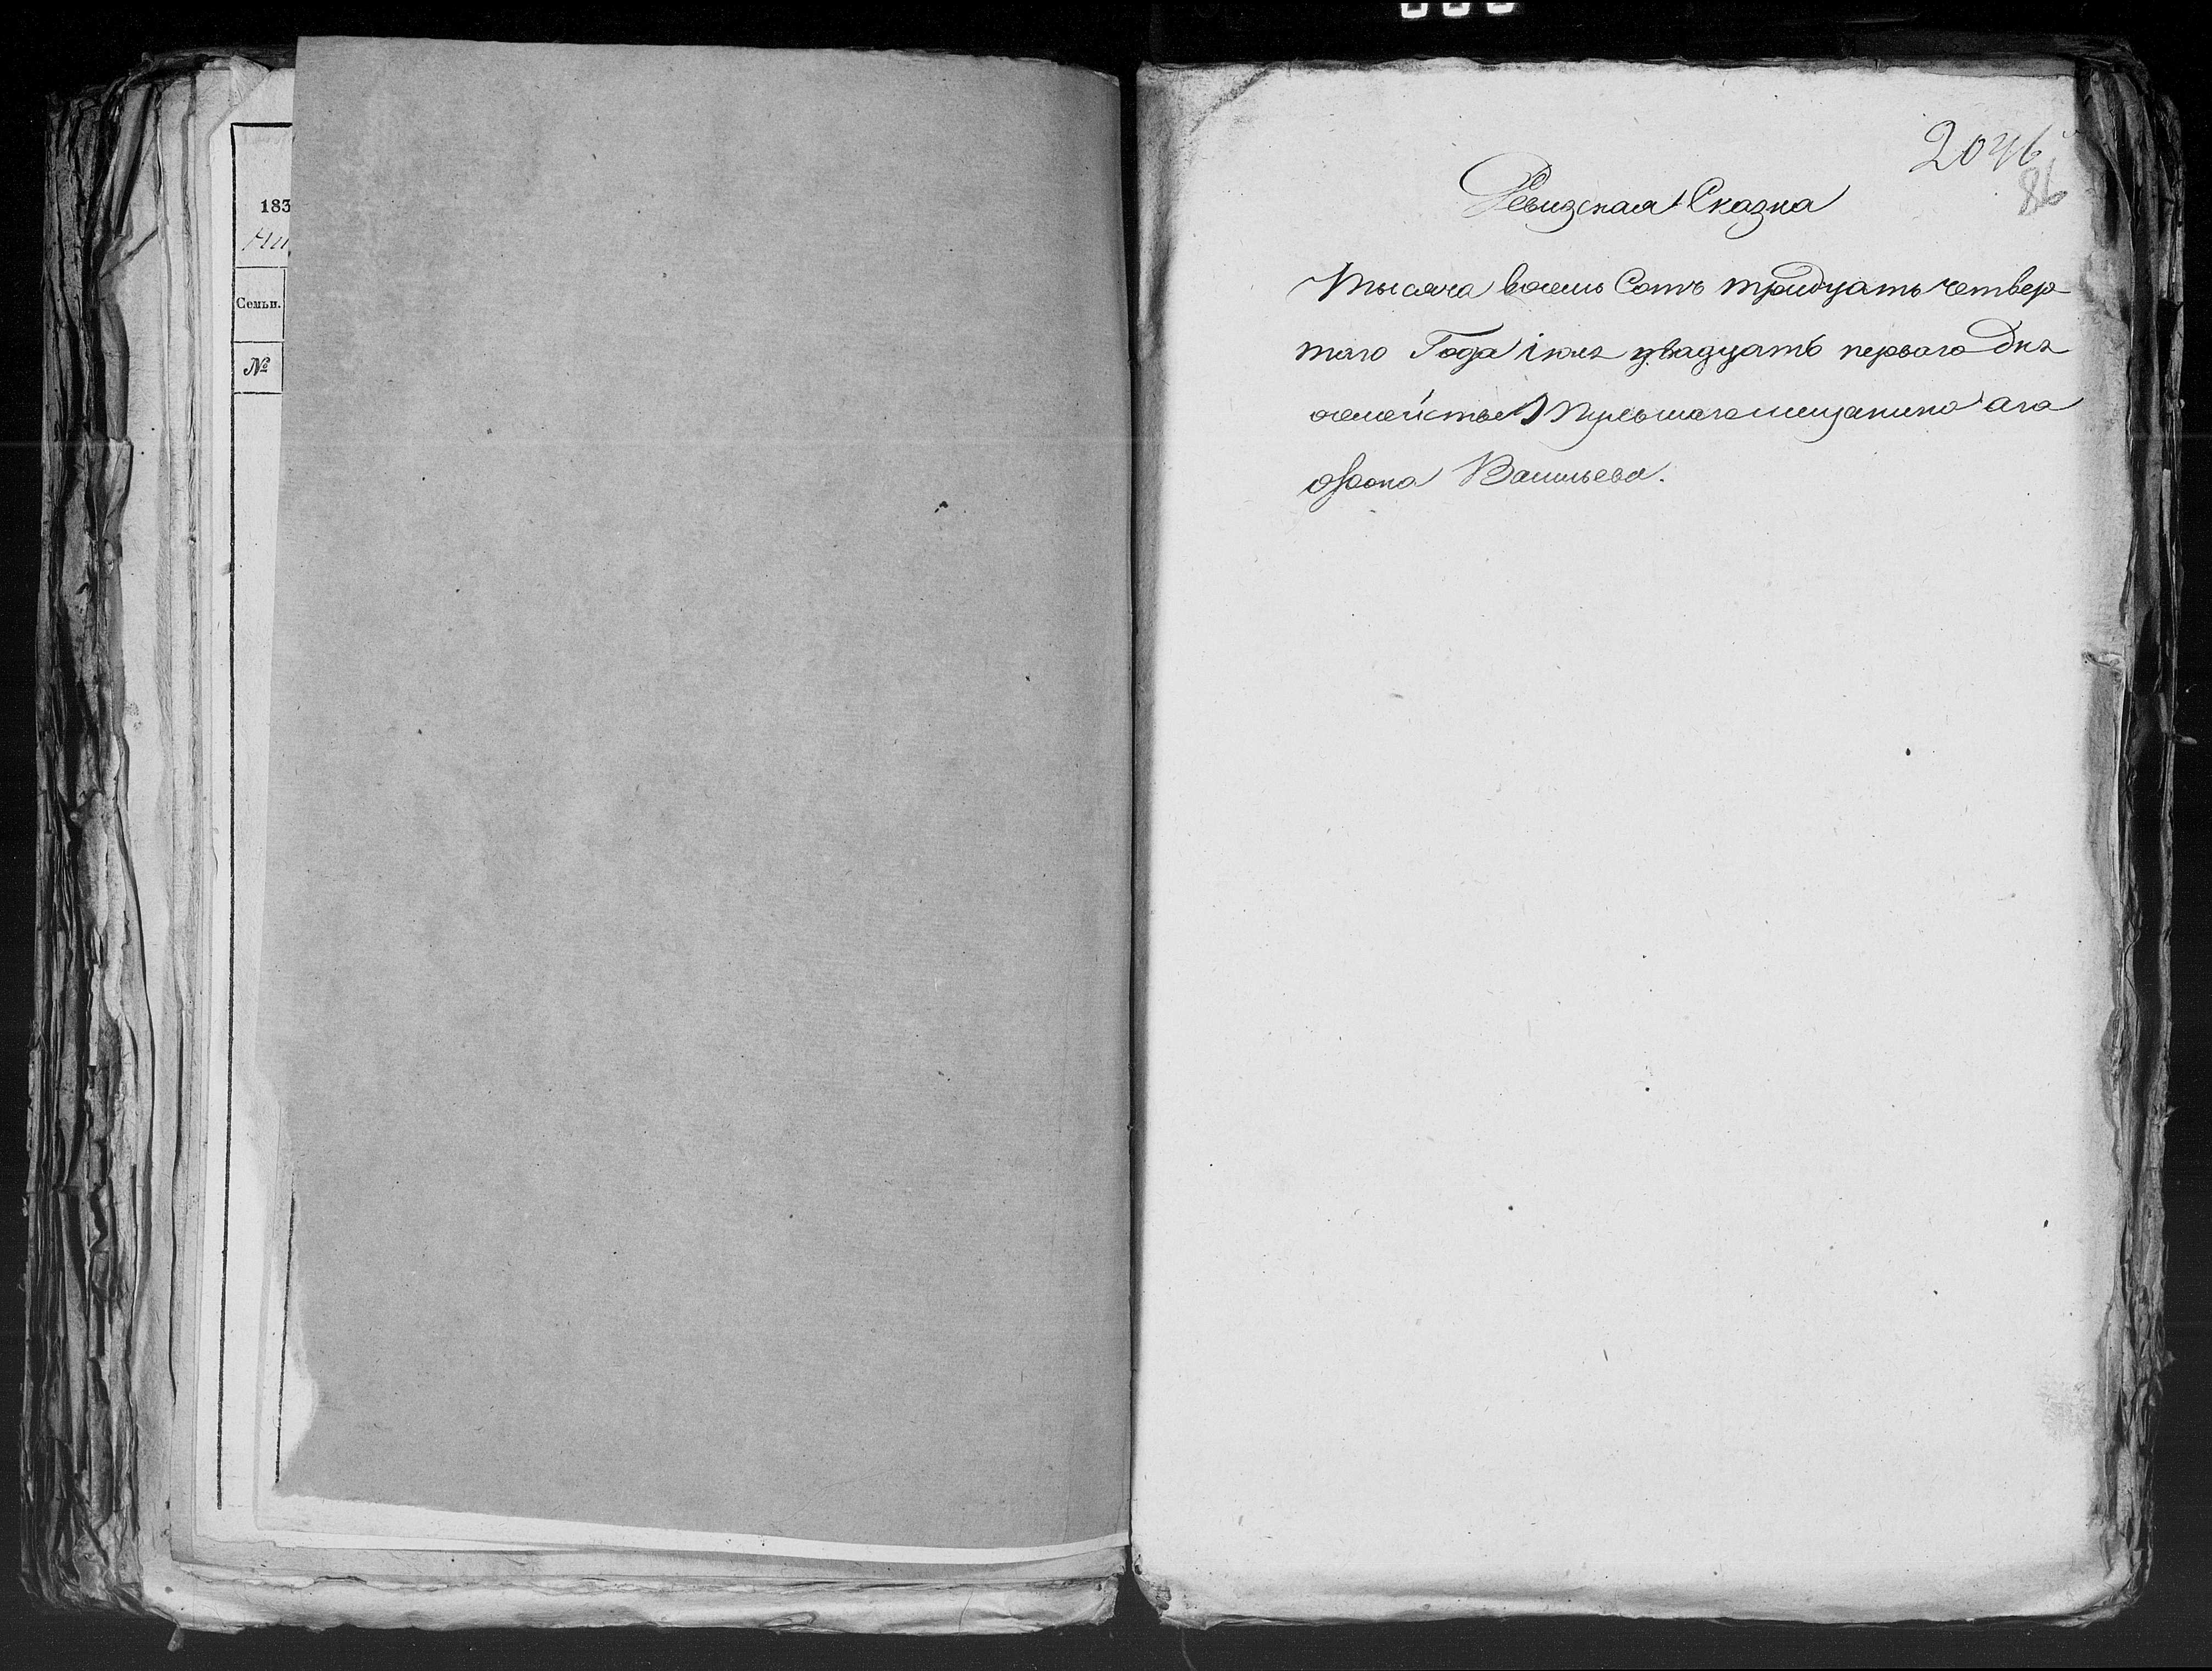 183
Семьи.
№
2046
86
Ревизская Сказка
Тысяча восемь Сотъ тридцать четвер
таго Года iюля двадцать перваго дня
осемействе Тульшаго мещанина ага
фона Васильева.